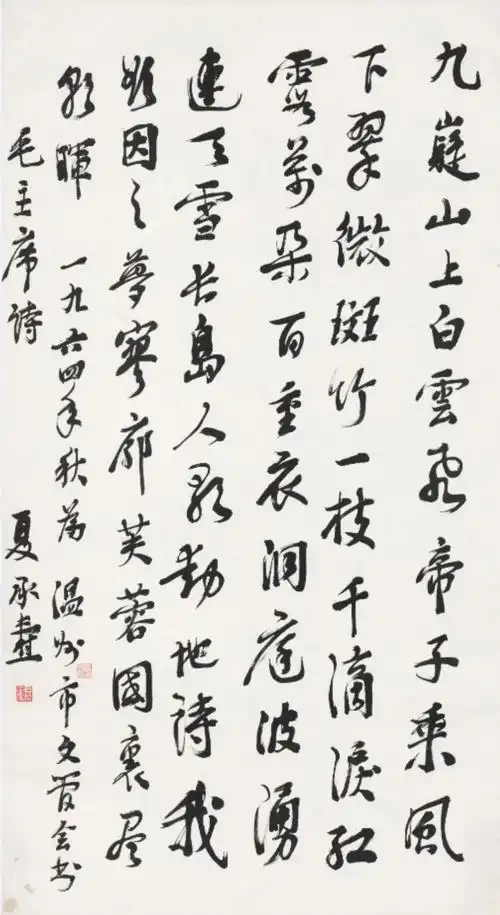 九嶷山上白雲飛帝子乘風
下翠微斑竹一枝千滴淚紅
霞萬朵百重衣洞庭波湧
連天雪長島人歌動地詩我
欲因之夢寥廓芙蓉國裏尽
朝暉 一九六四年秋為 温州市文管会书
毛主席詩 夏承燾